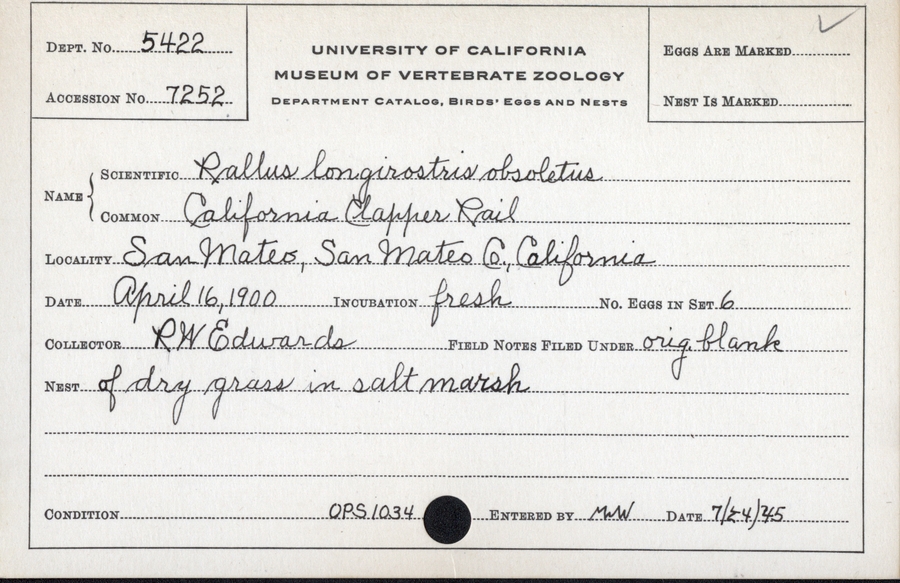 Dept. No. 5422
Accession No. 7252
UNIVERSITY OF CALIFORNIA
MUSEUM OF VERTEBRATE ZOOLOGY
Department Catalog, Birds' Eggs and Nests
Eggs Are Marked
Nest Is Marked
Name
Scientific Rallus longirostris obsoletus
Common California Clapper Rail
Locality San Mateo, San Mateo Co., California
Date April 16, 1900 Incubation fresh No. Eggs in Set 6
Collector RW Edwards Field Notes Filed Under orig. blank
Nest of dry grass in salt marsh
Condition OPS 1034 Entered by MWW Date 7/24/45